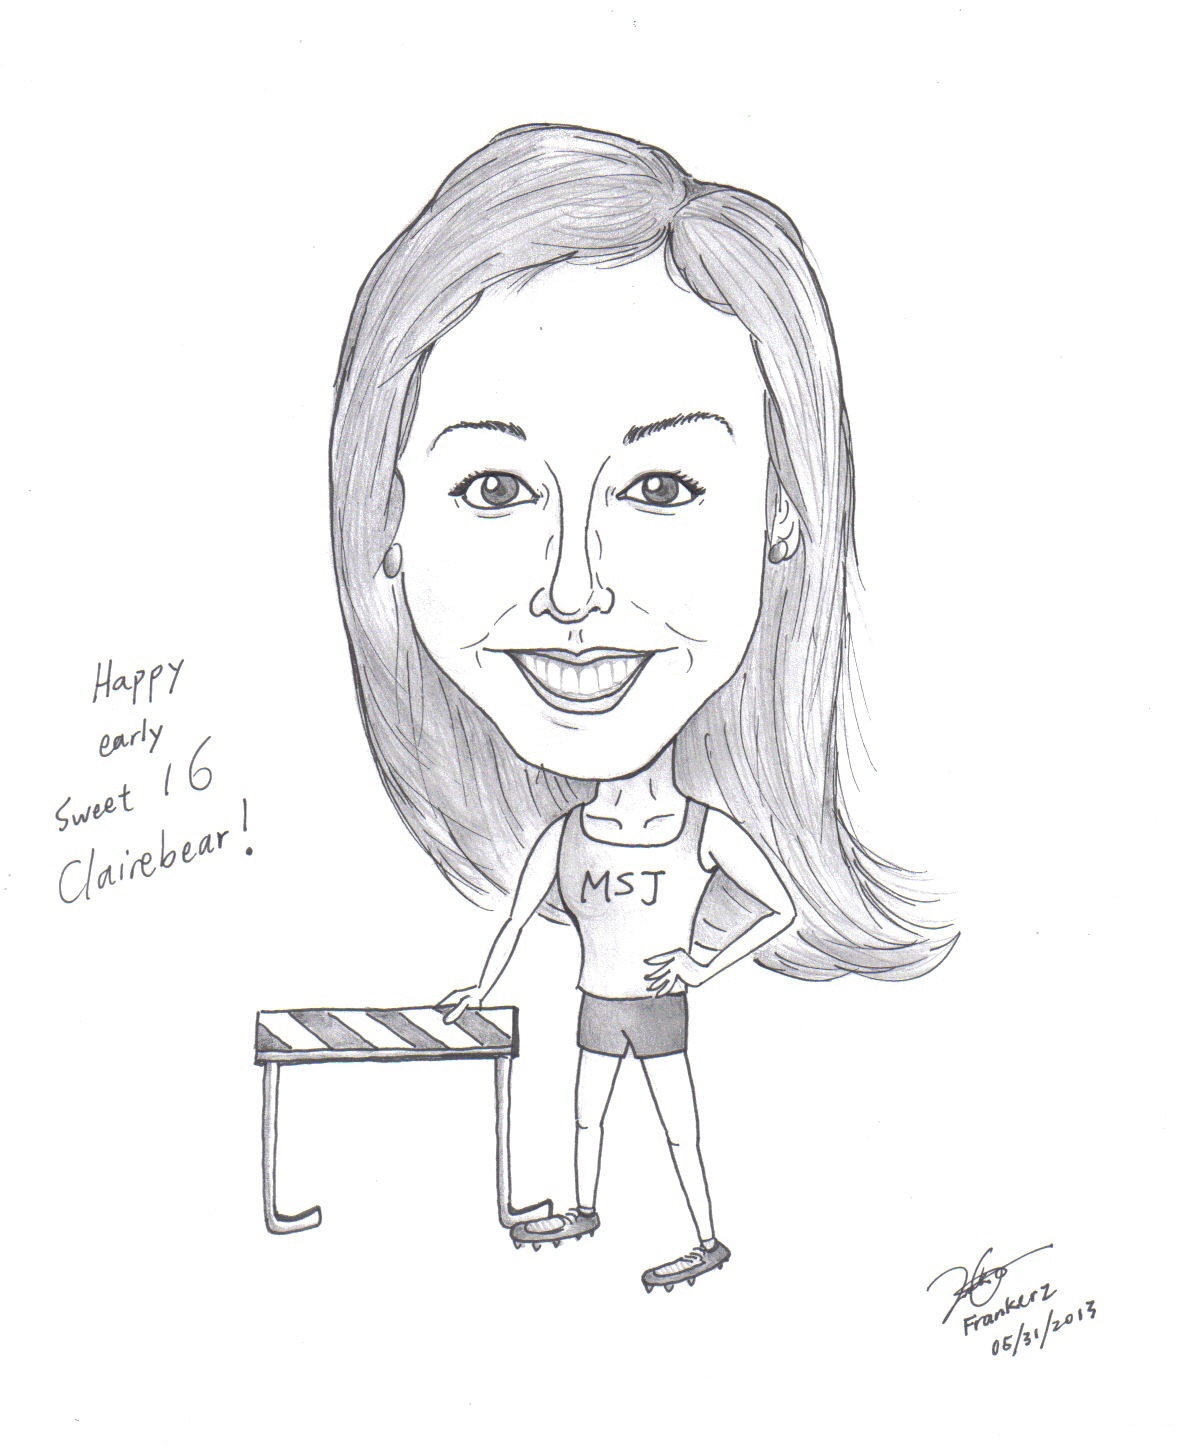 Happy
early
Sweet 16
Clairebear!
MSJ
Frankerz
05/31/2013